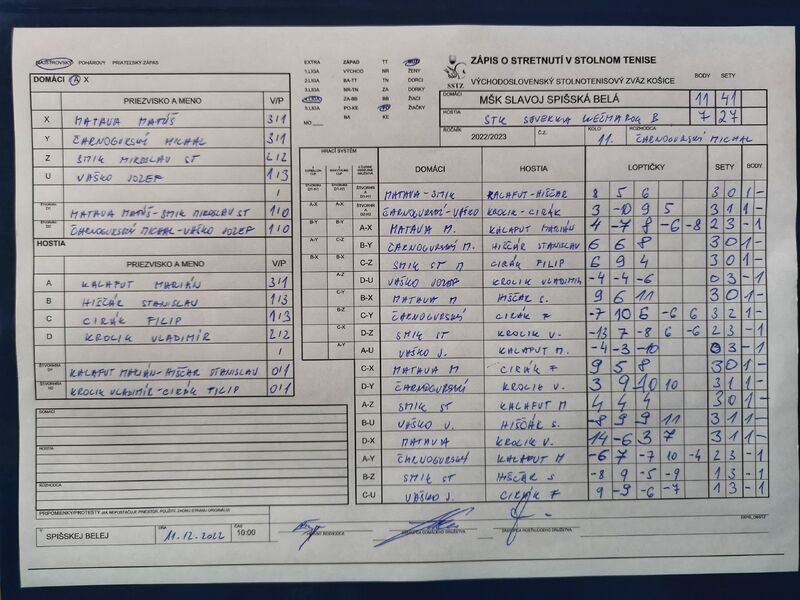 MAJSTROVSKÝ POHÁROVÝ PRIATEĽSKÝ ZÁPAS
DOMÁCI A X
PRIEZVISKO A MENO V/P
X MATAVA MATÚŠ 3/1
Y ČARNOGURSKÝ MICHAL 3/1
Z SMIK MIROSLAV ST 2/2
U VAŠKO JOZEF 1/3
/
MATAVA MATÚŠ-SMIK MIROSLAV ST 1/0
ČARNOGURSKÝ MICHAL-VAŠKO JOZEF 1/0
HOSTIA
PRIEZVISKO A MENO V/P
A KALAFUT MARIÁN 3/1
B HIŠČÁR STANISLAV 1/3
C CIRÁK FILIP 1/3
D KROLIK VLADIMÍR 2/2
/
KALAFUT MARIÁN-HIŠČÁR STANISLAV 0/1
KROLIK VLADIMÍR-CIRÁK FILIP 0/1
DOMÁCI
HOSTIA
ROZHODCA
EXTRA ZÁPAD TT MUŽI
1.LIGA VÝCHOD NR ŽENY
2.LIGA BA-TT TN DORCI
3.LIGA NR-TN ZA DORKY
4.LIGA ZA-BB BB ŽIACI
5.LIGA PO-KE PO ŽIAČKY
MO BA KE
SSTZ
ZÁPIS O STRETNUTÍ V STOLNOM TENISE
VÝCHODOSLOVENSKÝ STOLNOTENISOVÝ ZVÄZ KOŠICE BODY SETY
DOMÁCI MŠK SLAVOJ SPIŠSKÁ BELÁ 11 41
HOSTIA STK SEVERKA KEŽMAROK B 7 27
ROČNÍK 2022/2023 Č.Z. KOLO 11. ROZHODCA ČARNOGURSKÝ MICHAL
HRACÍ SYSTÉM
DOMÁCI HOSTIA LOPTIČKY SETY BODY
MATAVA-SMIK KALAFUT-HIŠČAR 8 5 6 3 0 1 -
A-X ČARNOGURSKÝ-VAŠKO KROLIK-CIRÁK 3 -10 9 5 3 1 1 -
A-X MATAVA M. KALAFUT MARIÁN 4 -7 8 -6 -8 2 3 - 1
B-Y ČARNOGURSKÝ M. HIŠČÁR STANISLAV 6 6 8 3 0 1 -
C-Z SMIK ST M CIRÁK FILIP 6 9 4 3 0 1 -
D-U VAŠKO JOZEF KROLIK VLADIMIR -4 -4 -6 0 3 - 1
B-X MATAVA M HIŠČAR S. 9 6 11 3 0 1 -
C-Y ČARNOGURSKÝ CIRÁK F -7 10 6 -6 6 3 2 1 -
D-Z SMIK ST KROLIK V. -13 7 -8 6 -6 2 3 - 1
A-U VAŠKO J. KALAFUT M. -4 -3 -10 0 3 - 1
C-X MATAVA M CIRÁK F 9 5 8 3 0 1 -
D-Y ČARNOGURSKÝ KROLIK V. 3 9 -10 10 3 1 1 -
A-Z SMIK ST KALAFUT M 4 4 4 3 0 1 -
B-U VAŠKO U. HIŠČÁR S. -8 9 9 11 3 1 1 -
D-X MATAVA KROLIK V. 14 -6 3 7 3 1 1 -
A-Y ČARNOGURSKÝ KALAFUT M -6 7 -7 10 -4 2 3 - 1
B-Z SMIK ST HIŠČÁR S -8 9 -5 -9 1 3 - 1
C-U VAŠKO J. CIRÁK F 9 -9 -6 -7 1 3 - 1
PRIPOMIENKY/PROTESTY (AK NEPOSTAČUJE PRIESTOR, POUŽITE ZADNÚ STRANU ORIGINÁLU)
V SPIŠSKEJ BELEJ DŇA 11.12.2022 ČAS 10:00
HLAVNÝ ROZHODCA VEDÚCI DOMÁCEHO DRUŽSTVA